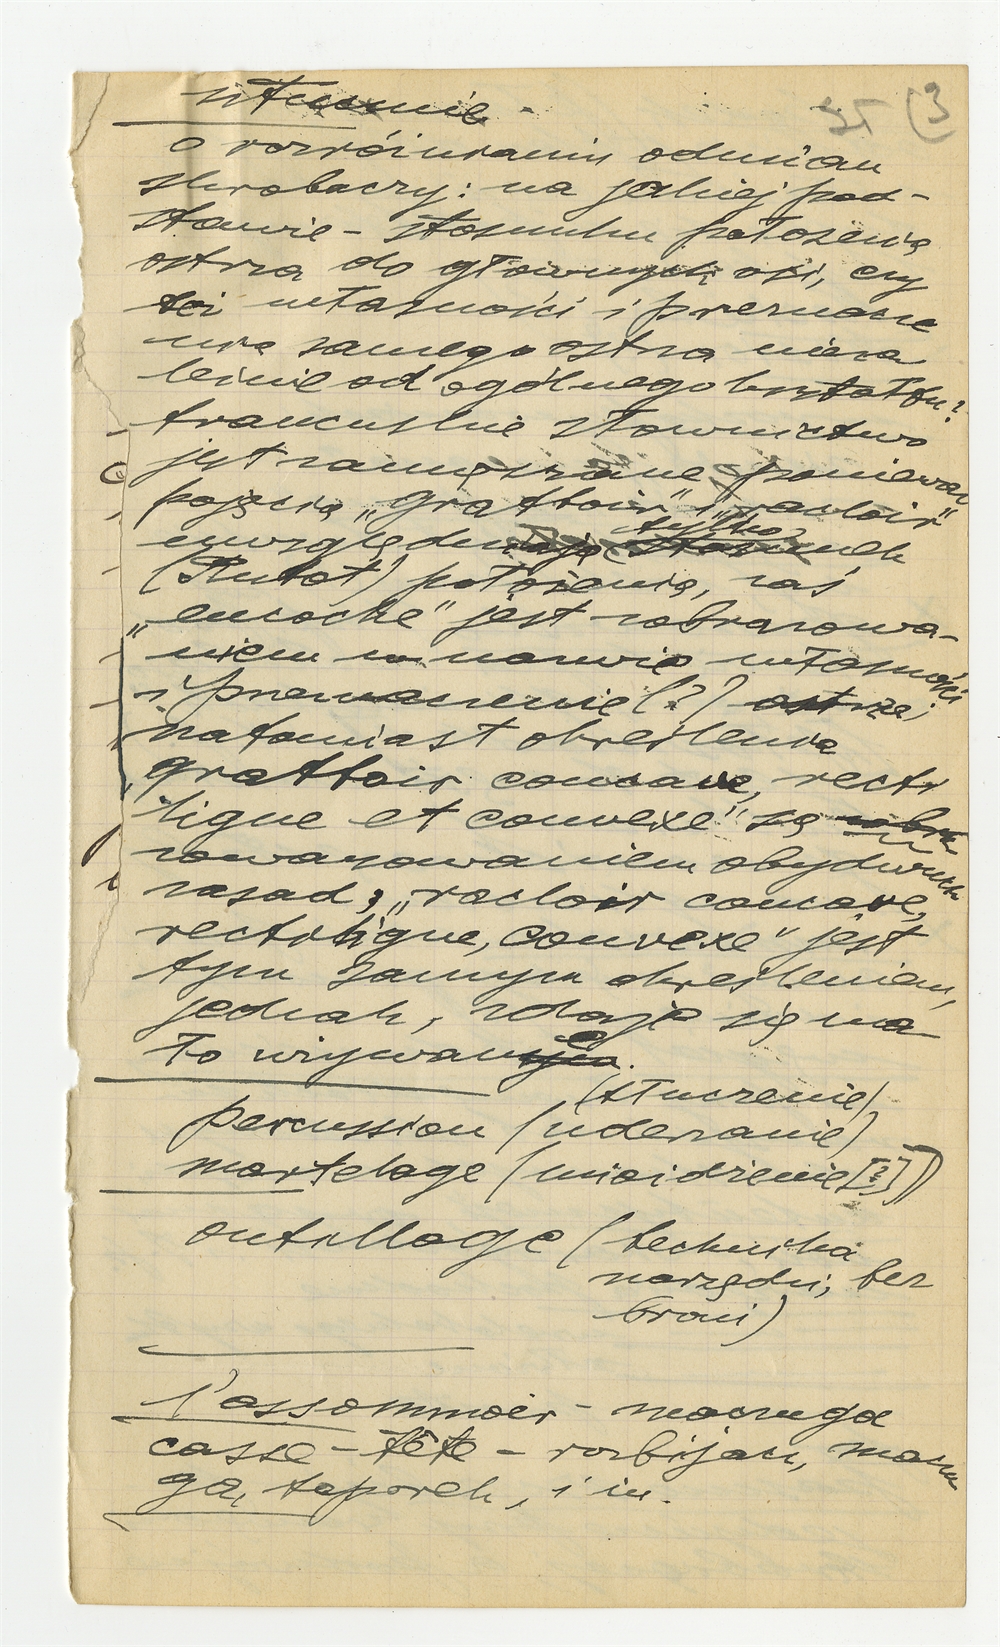 35 (3
o rozróżnianiu odmian
skrobaczy: na jakiej pod-
stawie - stosunku położenia
ostrza do głównych osi, czy
też własności i przeznacze
nia samego ostrza nieza
leżnie od ogólnego kształtu?
francuskie słownictwo
jest zamieszane ponieważ
pojęcia „grattoir" i „racloir"
uwzględniają tylko stosunek
(Rutot) położenia, zaś
„encoche" jest zobrazowa-
niem w nazwie własności
i przeznaczenie (?) ostrza;
natomiast określenia
„grattoir concave, recti
ligne et convexe" są
zobrazowaniem obydwuch
zasad; „racloir concave,
rectoligne, convexe" jest
tym samym określeniem,
jednak, zdaje się ma
ło używane.
(tłuczenie)
percussion (uderzanie)
martelage (miażdżenie [?])
outillage (technika
narzędzi, bez
broni)
l'assommoir - maczuga
casse-tête - rozbijacz, maczu
ga, toporek, i in.